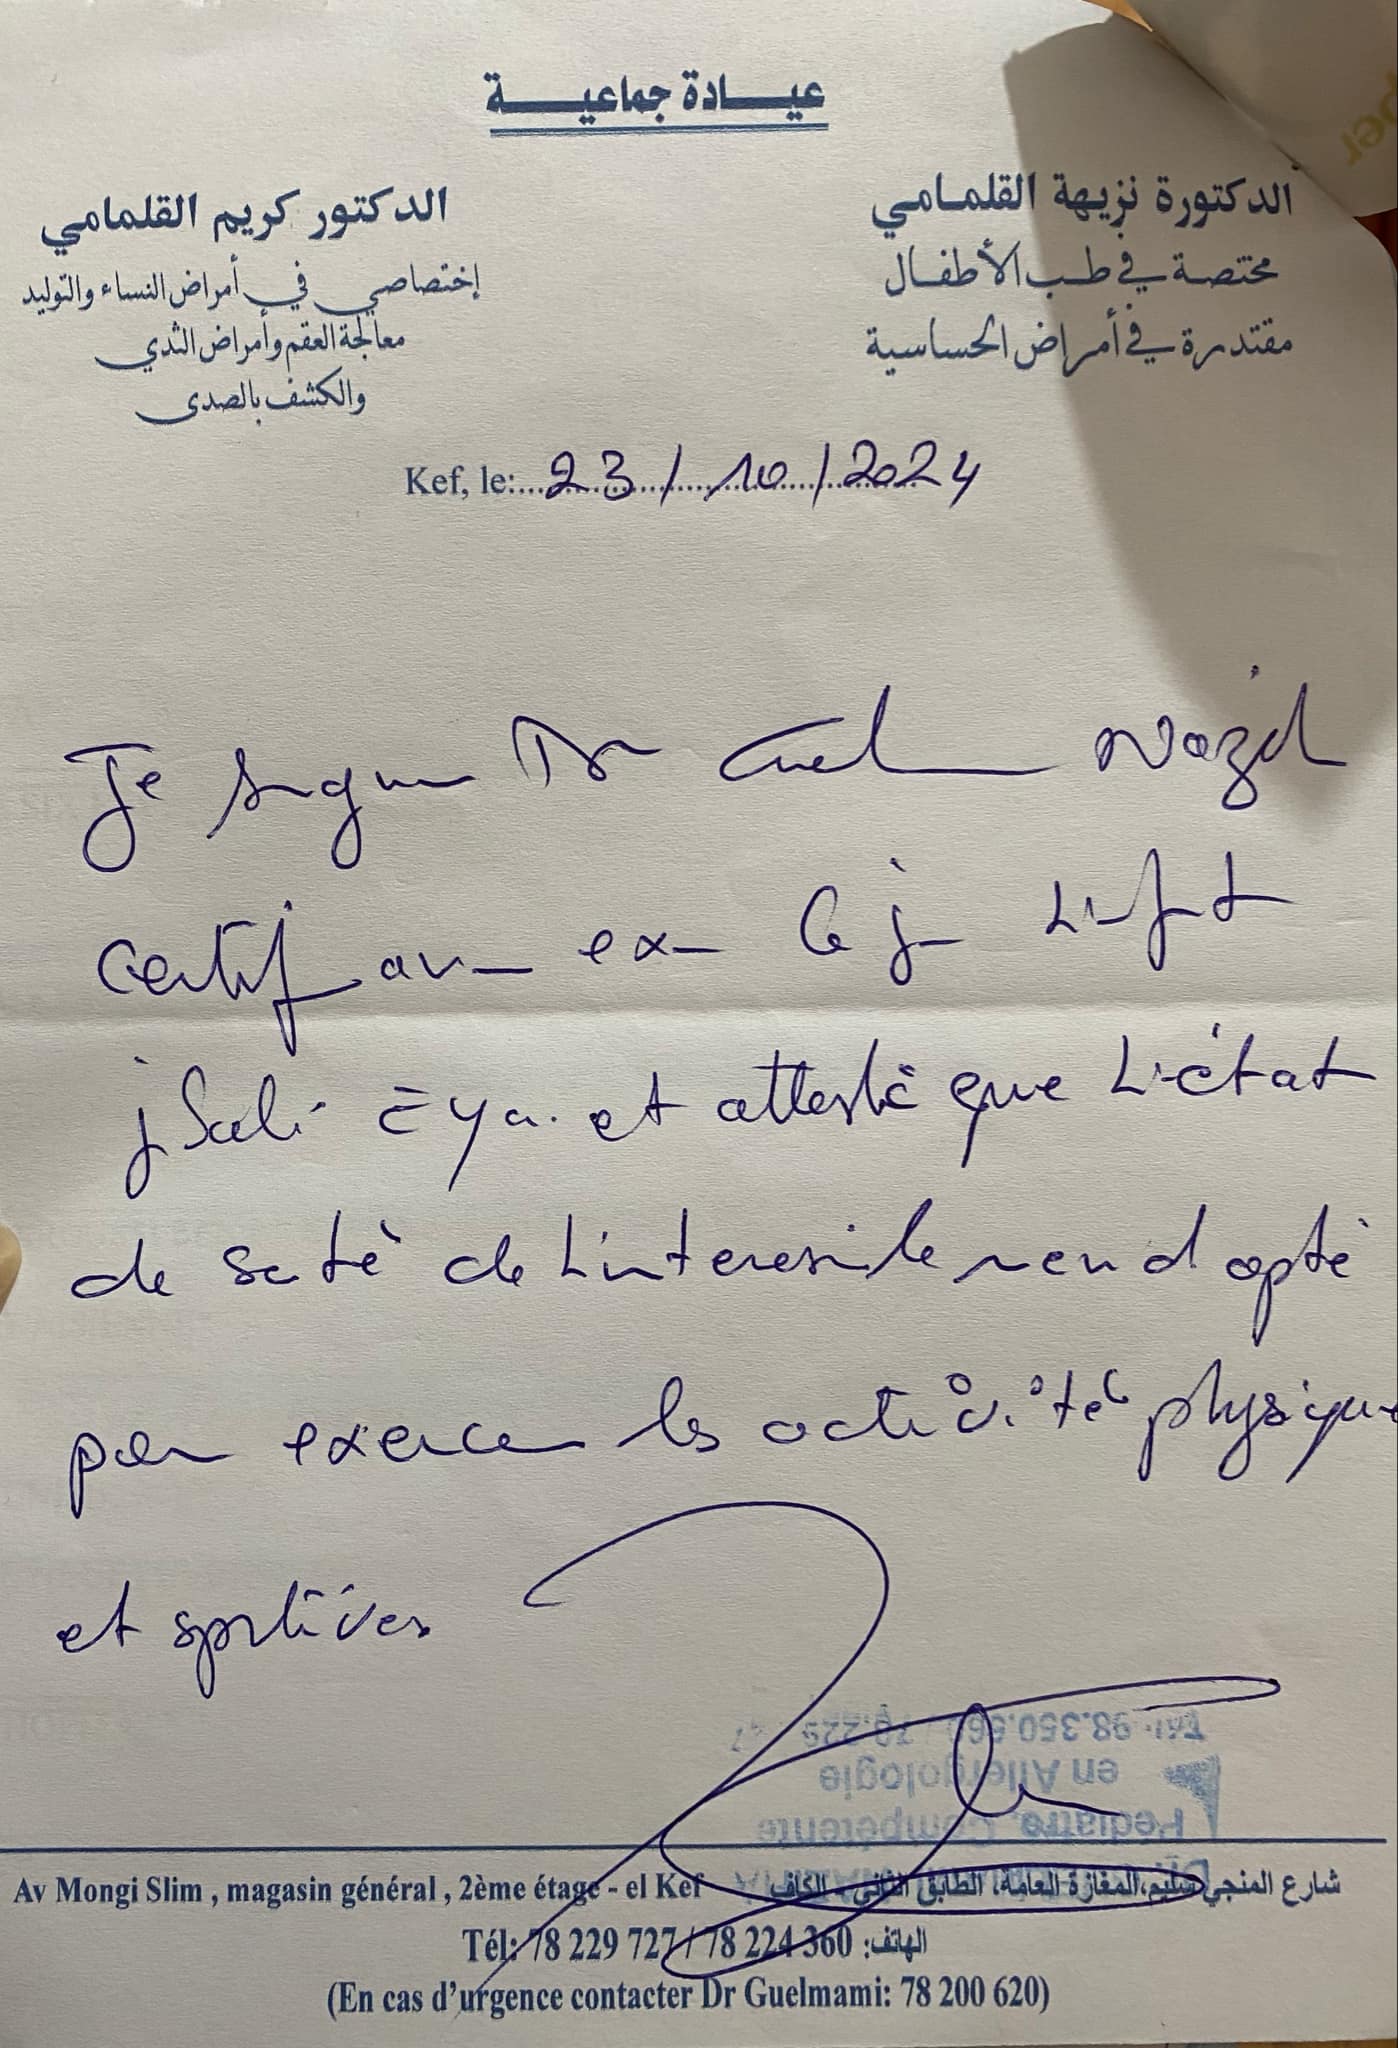 عيادة جماعية
الدكتورة نزيهة القلمامي
مختصة في طب الأطفال
مقتدرة في أمراض الحساسية
الدكتور كريم القلمامي
إختصاصي في أمراض النساء والتوليد
معالجة العقم وأمراض الثدي
والكشف بالصدى
Kef, le: 23 / 10 / 2024
Je Dr
certif le
et atteste que L'état
de de L'interesse le rend apte
pour exercer les activités physique
et sportives
Tél: 98.350.560 / 78.229
en Allergologie
Pédiatre, Compétente
Av Mongi Slim , magasin général , 2ème étage - el Kef
شارع المنجي سليم، المغازة العامة، الطابق الثاني - الكاف
Tél: 78 229 727 / 78 224 360 :الهاتف
(En cas d'urgence contacter Dr Guelmami: 78 200 620)